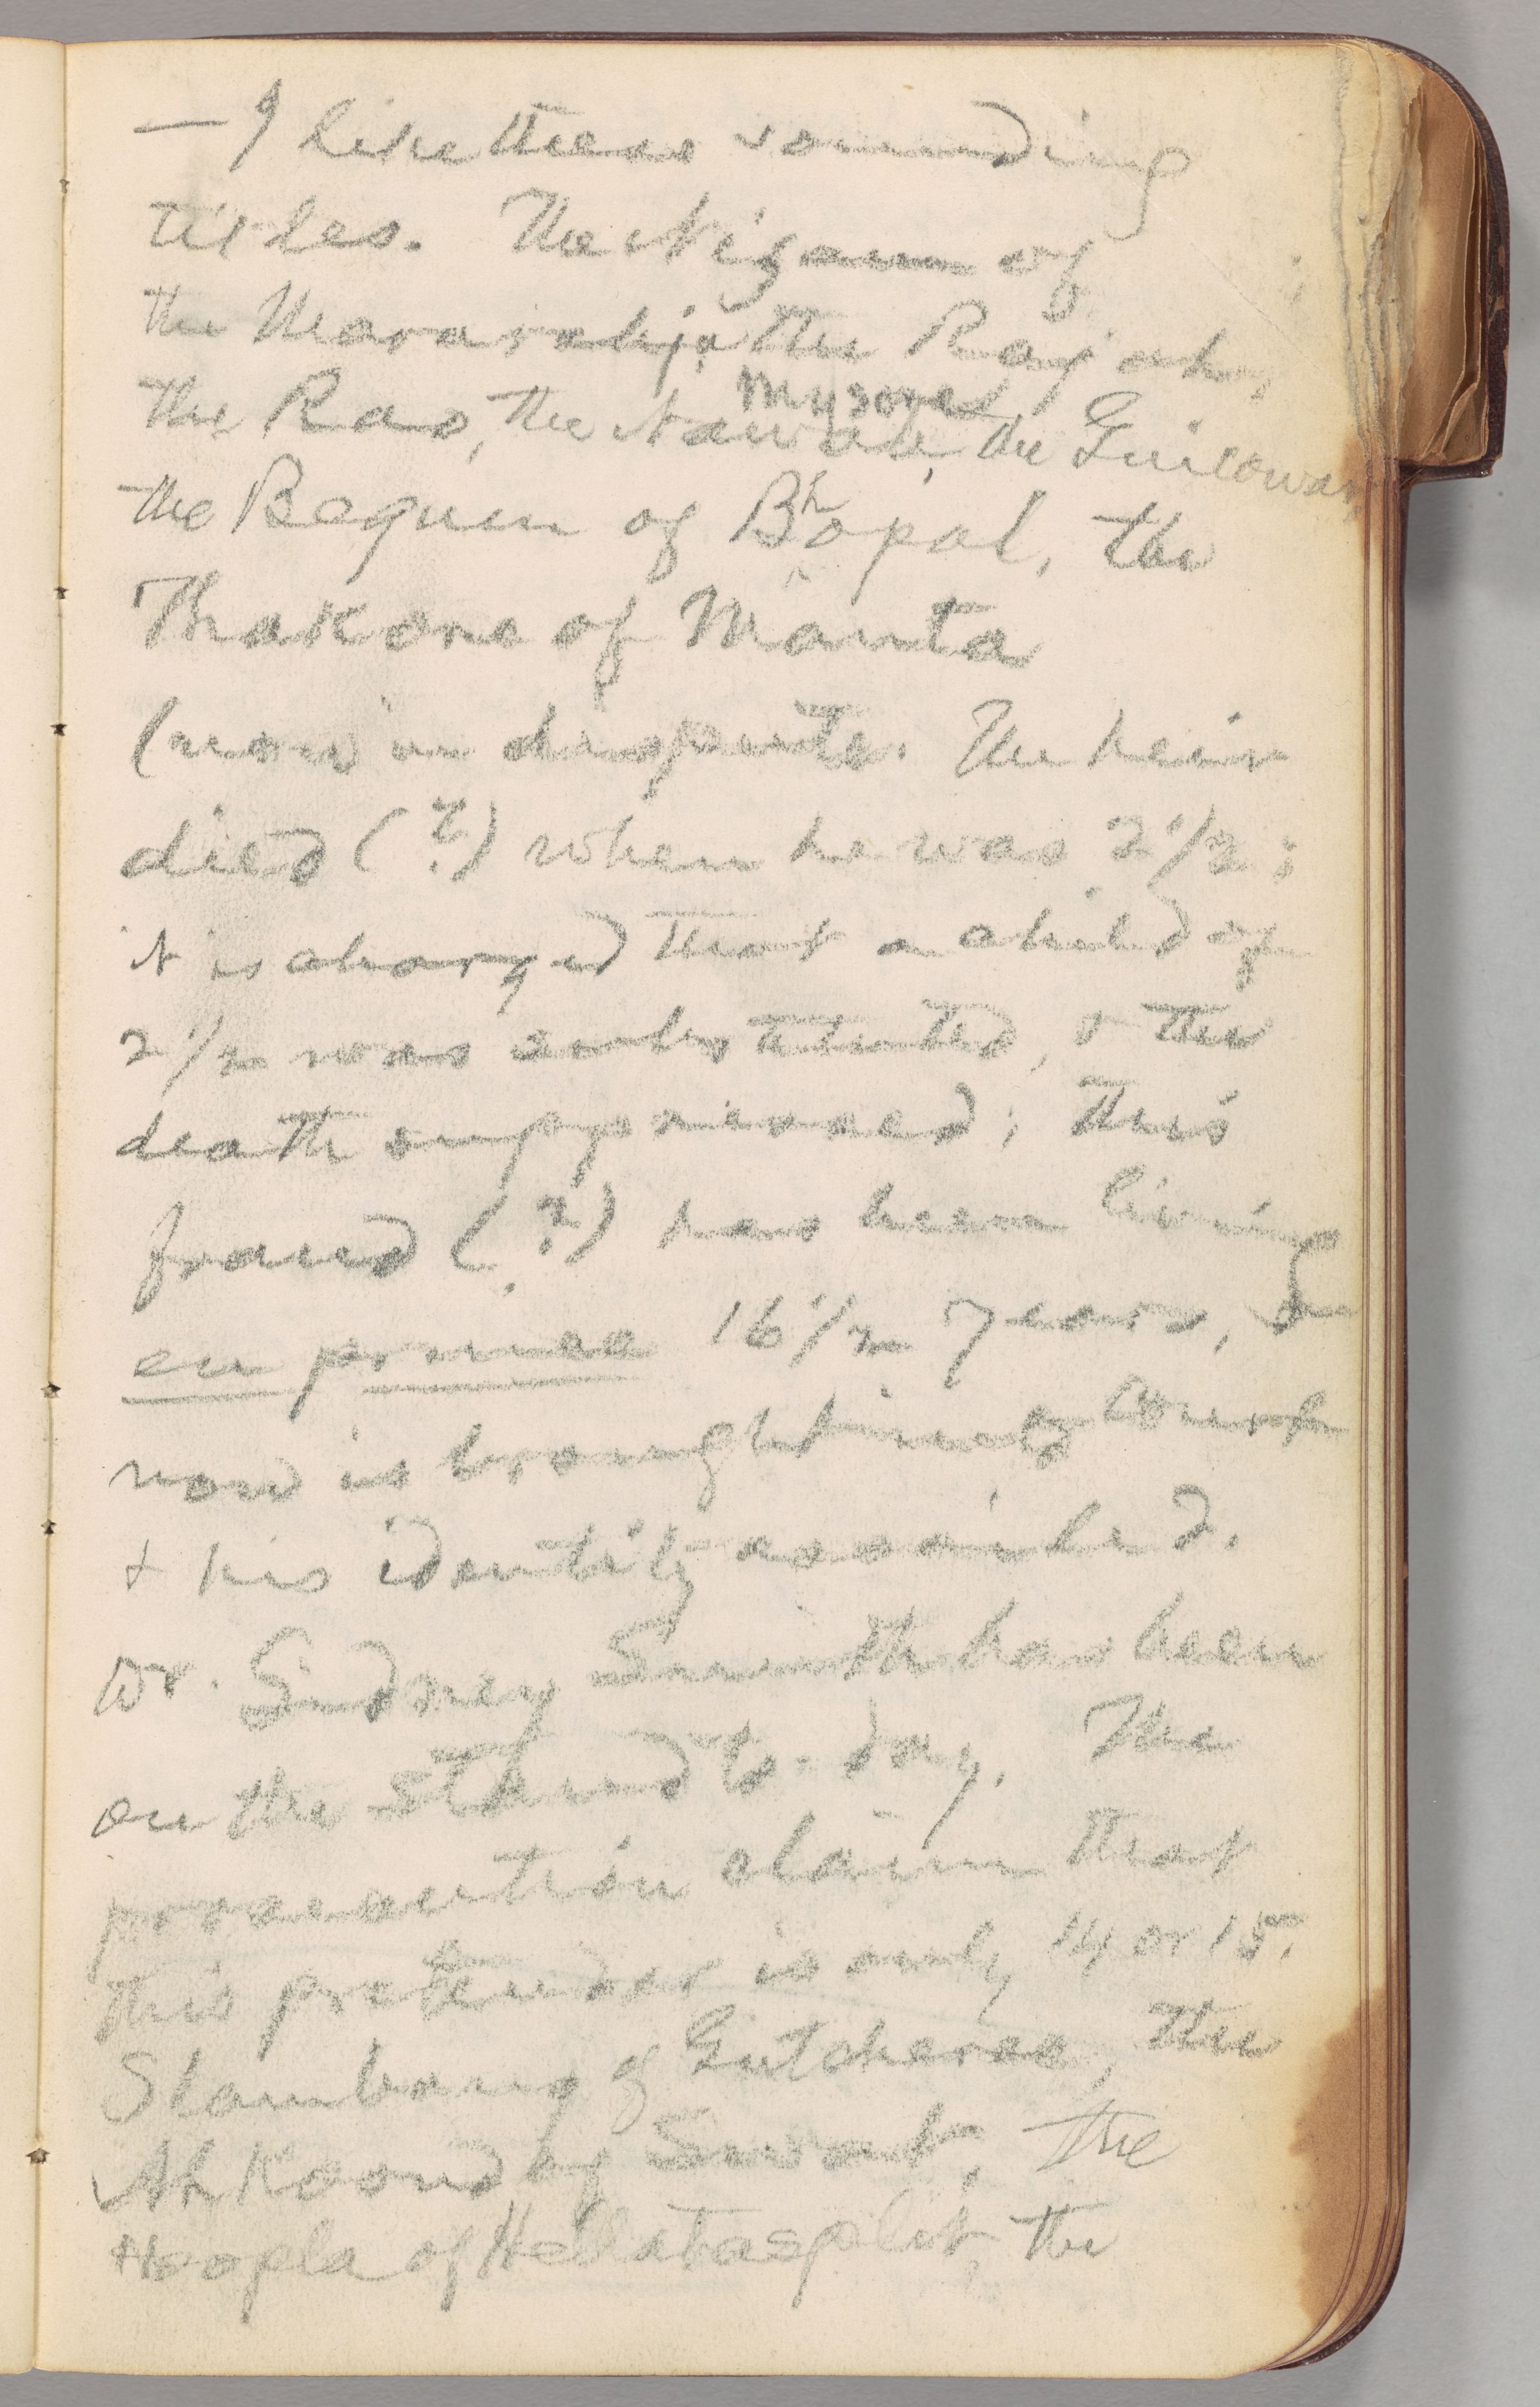 — I like these sounding
titles. The Nizam of
the Mararahja the Rajah,
the Rao, the Nawab, the Guicowar
Mysore
the Begum of Bhopal, the
Thakore of Manta
(now in dispute. The heir
died (?) when he was 2 1/2;
it is charged that a child of
2 1/2 was substituted, & the
death suppressed; this
fraud (?) has been living
en prince 16 1/2 years, &
now is brought into Court
& his identity assailed.
Dr. Sidney Smith has been
on the stand to-day. The
prosecution claim that
this pretender is only 14 or 15.
Slambang of Gutcheree, the
Ahkoond of Swat, the
Hoopla of Hellatasplit, the